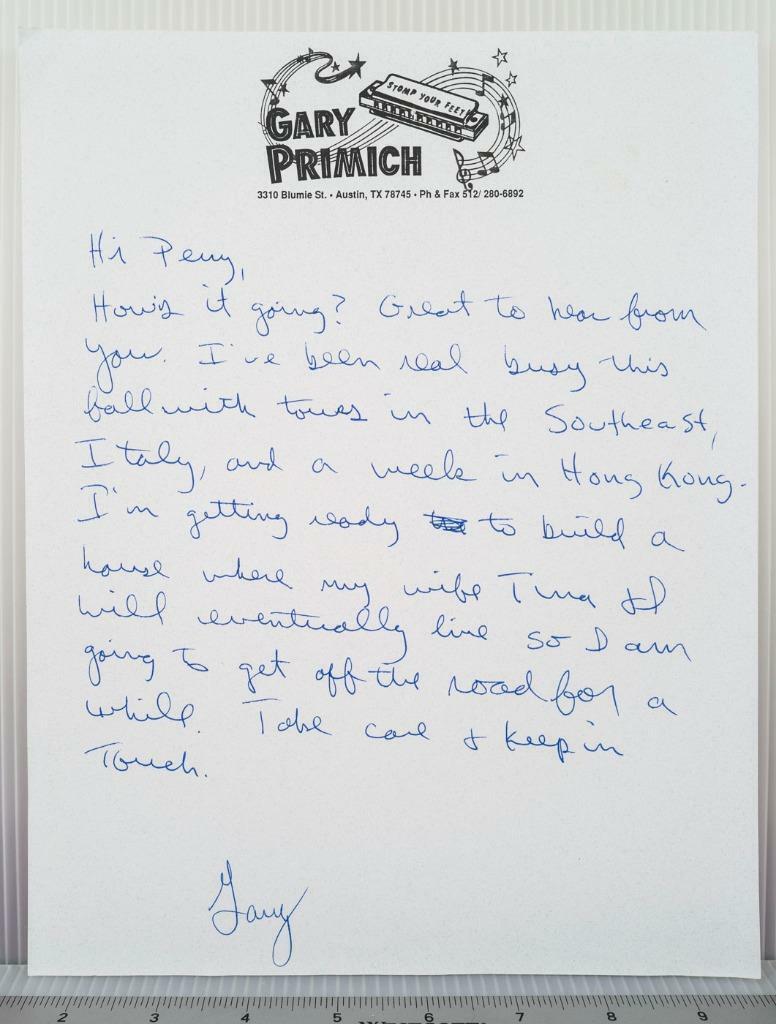 STOMP YOUR FEET!
GARY
PRIMICH
3310 Blumie St. • Austin, TX 78745 • Ph & Fax 512/ 280-6892
Hi Perry,
How's it going? Great to hear from
you. I've been real busy this
fall with tours in the Southeast,
Italy, and a week in Hong Kong.
I'm getting ready to build a
house where my wife Tina & I
will eventually live so I am
going to get off the road for a
while. Take care & keep in
Touch.
Gary
2 3 4 5 6 7 8 9